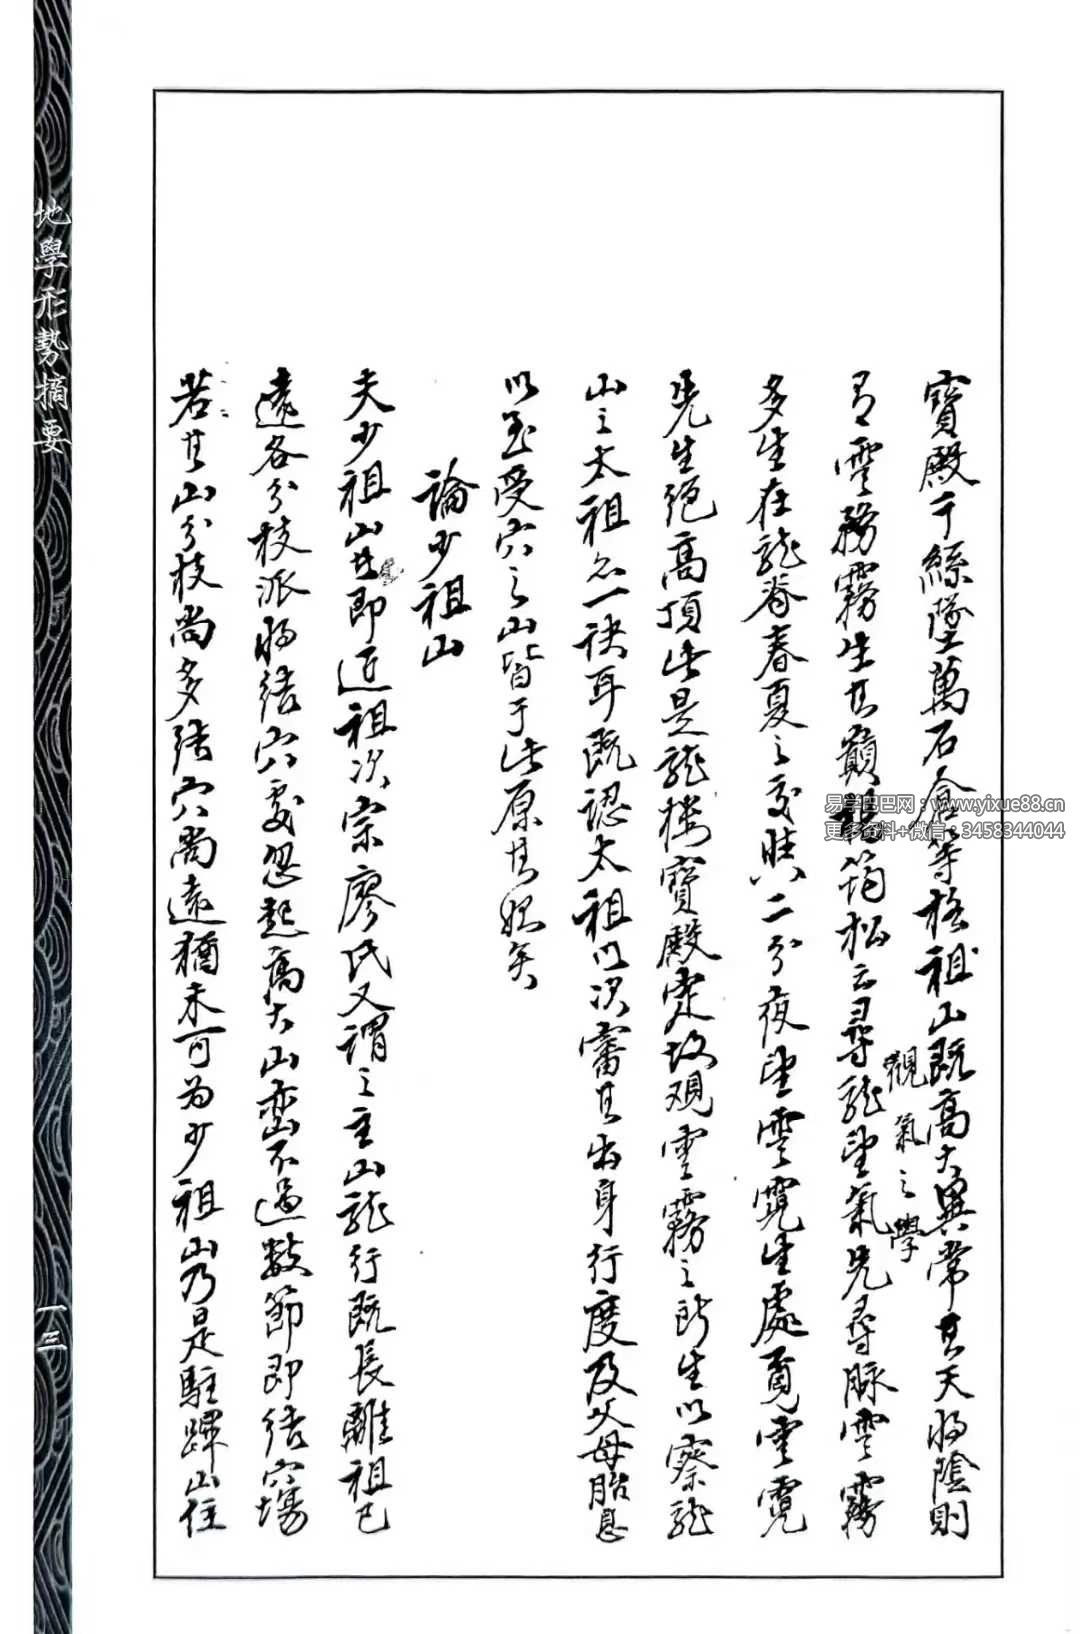 寶殿千絲墜萬石倉等格祖山既高大異常其天將陰則
有雲務霧生其巔楊筠松云尋龍望氣先尋脉雲霧
觀氣之學
多生在龍脊春夏之交時二分夜望雲霓生處覓雲霓
先生絕高頂此是龍樓寶殿定故观雲霧之所生以察龍
山之太祖亦一訣耳既認太祖以次審其出身行度及父母胎息
以至受穴之山皆于此原其始矣
論少祖山
夫少祖山者即近祖次宗廖氏又謂之主山龍行既長離祖已
遠各分枝派將結穴處忽起高大山峦不過數節即結穴場
若其山分枝尚多結穴尚遠猶未可为少祖山乃是駐蹕山住
地學形勢摘要
一三
易学巴巴网:www.yixue88.cn
更多资料+微信:3458344044